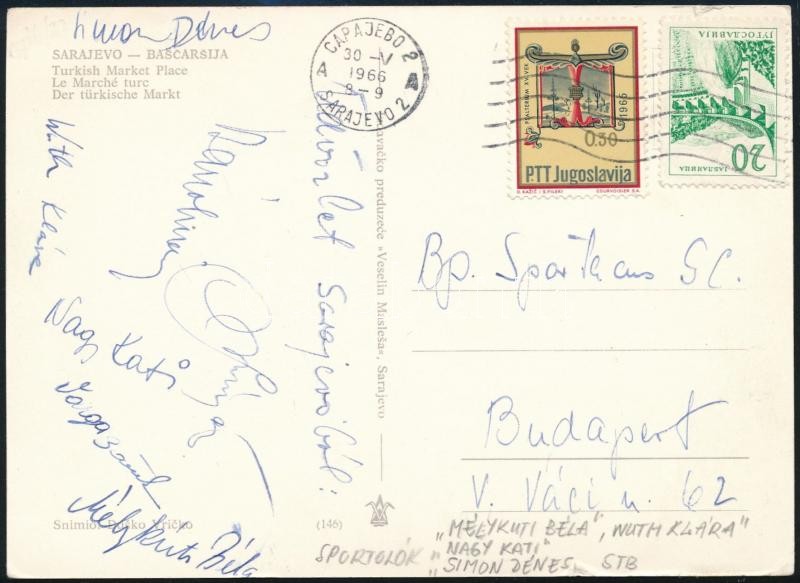 Simon Dénes
SARAJEVO — BAŠČARŠIJA
Turkish Market Place
Le Marché turc
Der türkische Markt
САРАЈЕВО 2
30-V
1966
8-9
A A
SARAJEVO 2
PSALTERIUM XV VEK
1966
0.30
PTT Jugoslavija
D. KAŽIĆ / S. FILEKI COURVOISIER S.A.
ЈУГОСЛАВИЈА
JUGOSLAVIJA
20
Wuth Klára
Nagy Kati
Mélykúti Béla
Üdvözlet Sarajevóból:
Izdavačko preduzeće »Veselin Masleša«, Sarajevo
Bp. Spartacus S C.
Budapest
V. Váci u. 62
Snimio: Duško Vričko
(146)
„MÉLYKUTI BÉLA”, WUTH KLÁRA”
SPORTOLÓK „NAGY KATI”
„SIMON DÉNES STB